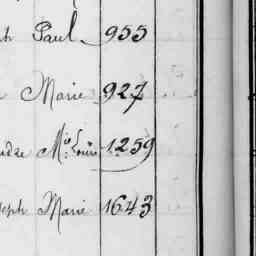 ph Paul 955
Marie 927
Mie Louise 1259
seph Marie 1643